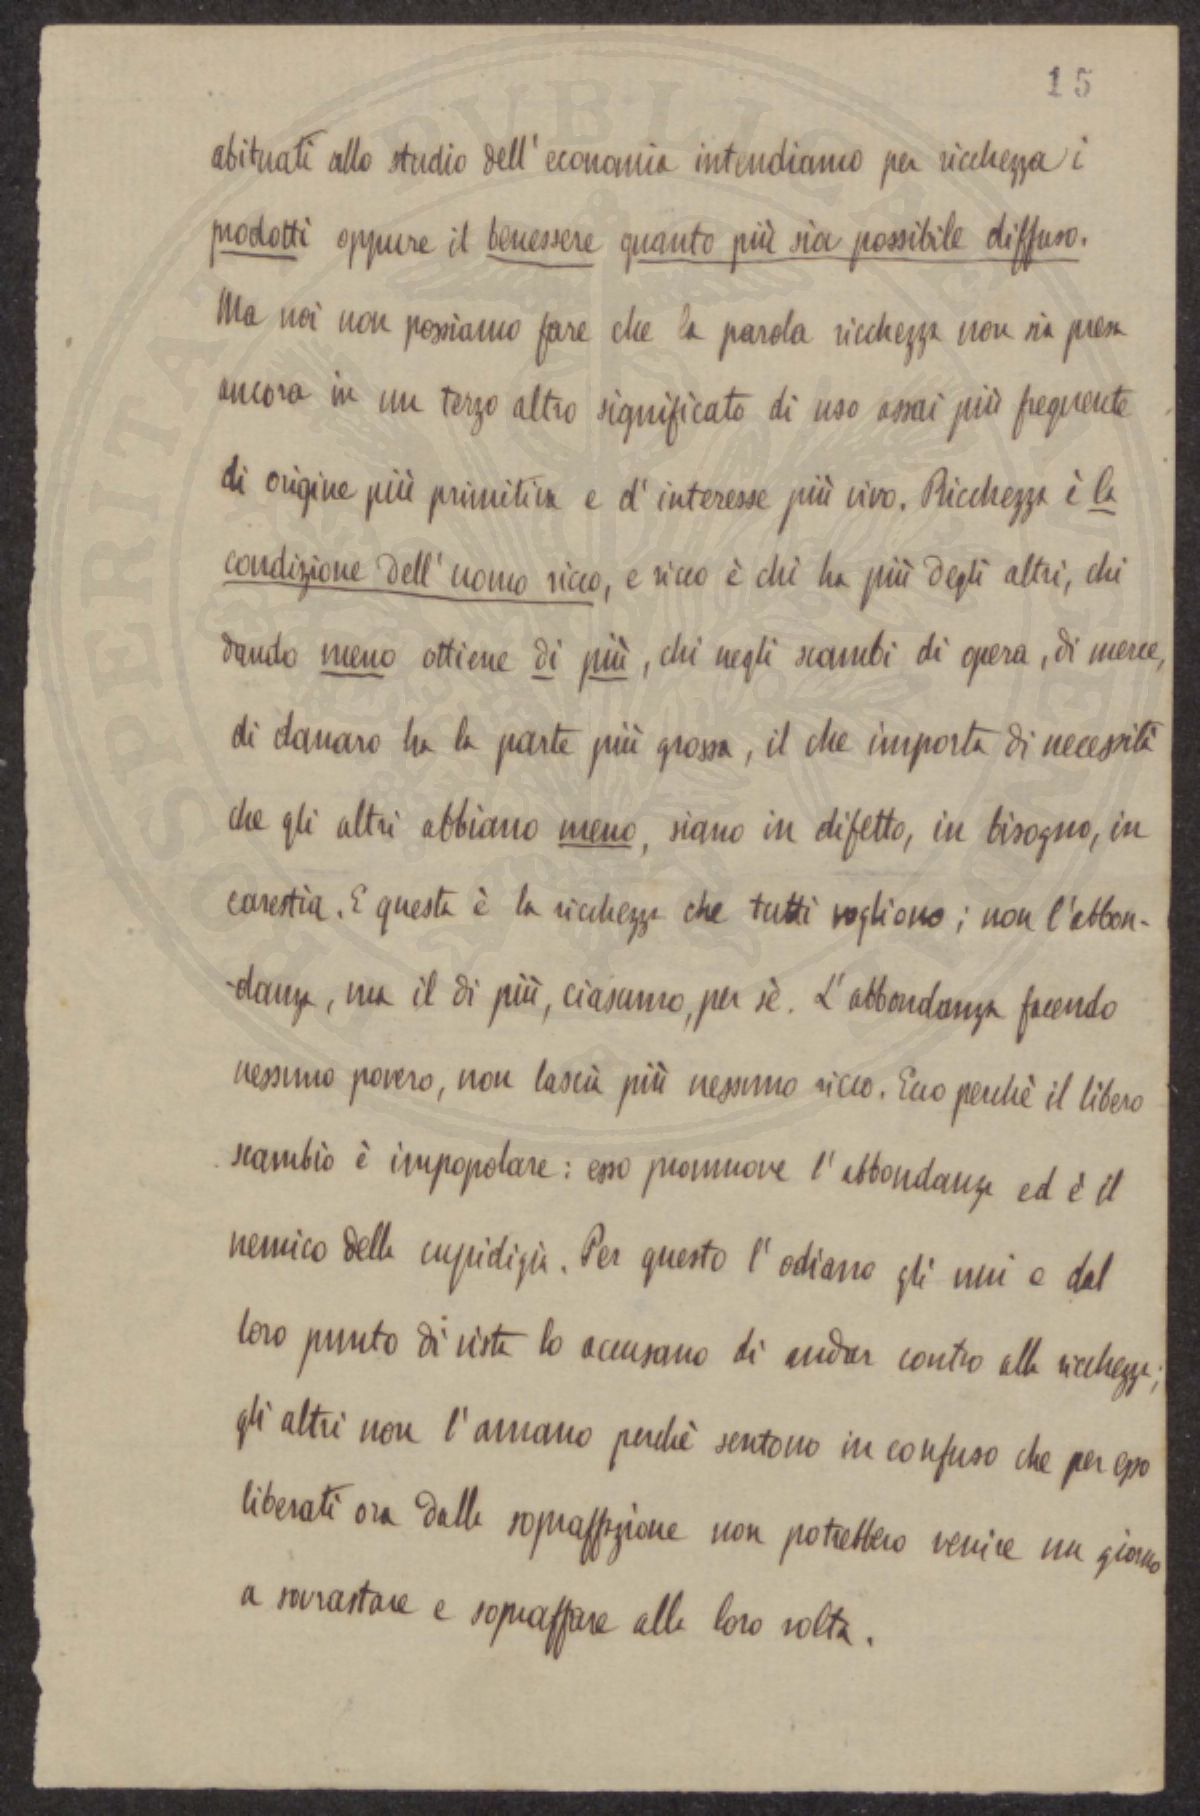 15
abituati allo studio dell'economia intendiamo per ricchezza i
prodotti oppure il benessere quanto più sia possibile diffuso.
Ma noi non possiamo fare che la parola ricchezza non sia presa
ancora in un terzo altro significato di uso assai più frequente
di origine più primitiva e d'interesse più vivo. Ricchezza è la
condizione dell'uomo ricco, e ricco è chi ha più degli altri, chi
dando meno ottiene di più, chi negli scambi di opera, di merce,
di danaro ha la parte più grossa, il che importa di necessità
che gli altri abbiano meno, siano in difetto, in bisogno, in
carestia. E questa è la ricchezza che tutti vogliono; non l'abbon-
-danza, ma il di più, ciascuno, per sè. L'abbondanza facendo
nessuno povero, non lascia più nessuno ricco. Ecco perchè il libero
scambio è impopolare: esso promuove l'abbondanza ed è il
nemico della cupidigia. Per questo l'odiano gli uni e dal
loro punto di vista lo accusano di andar contro alla ricchezza;
gli altri non l'amano perchè sentono in confuso che per esso
liberati ora dalla sopraffazione non potrebbero venire un giorno
a sovrastare e sopraffare alla loro volta.
PROSPERITAS PUBLICA